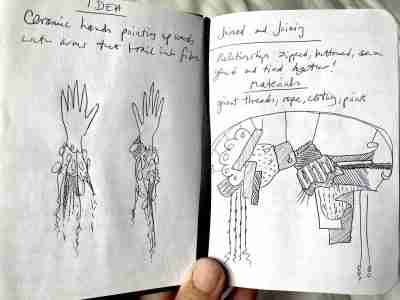 IDEA
Ceramic hands pointing upwards
with arms that trail into fibre
Joined and Joining
Relationships zipped, buttoned, sewn
glued and tied together!
Materials
giant threads, rope, clothing, paint